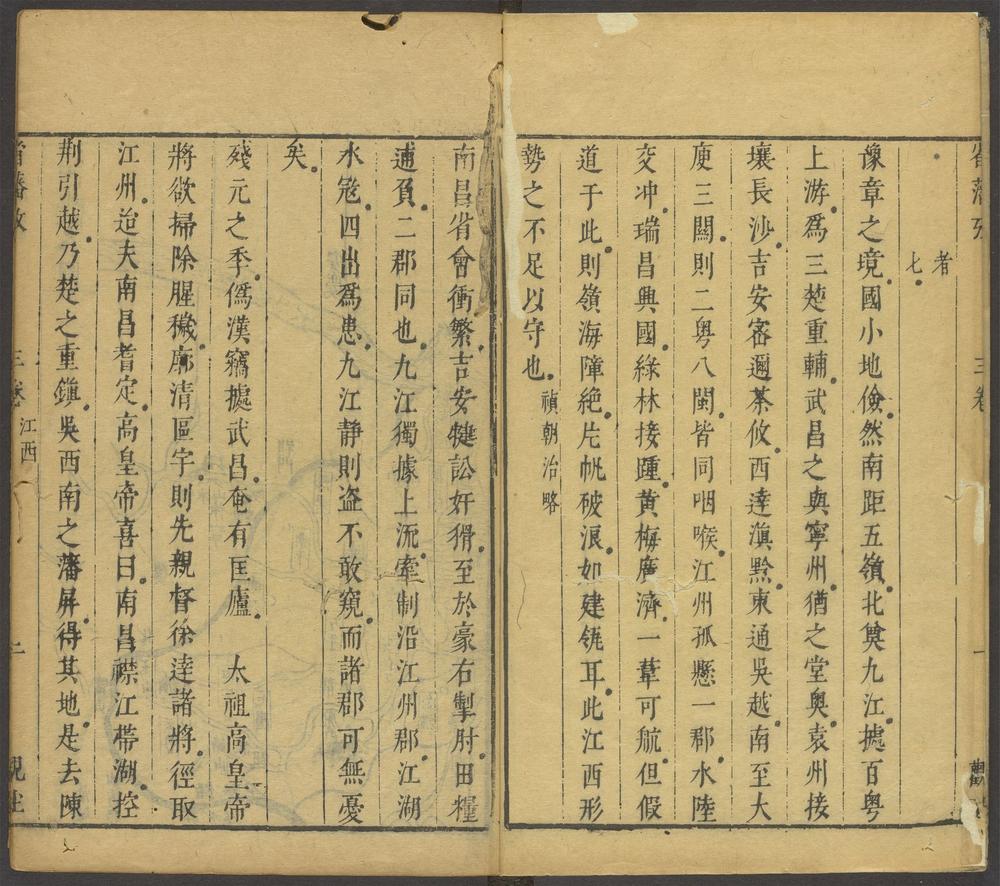 者
七
豫章之境國小地儉然南距五嶺北奠九江據百粵
上游爲三楚重輔武昌之與寧州猶之堂奧袁州接
壤長沙吉安密邇茶攸西達滇黔東通吳越南至大
庾三關則二粵八閩皆同咽喉江州孤懸一郡水陸
交冲瑞昌興國綠林接踵黃梅廣濟一葦可航但假
道于此則嶺海障絕片帆破浪如建瓴耳此江西形
勢之不足以守也 禎朝治略
南昌省會衝繁吉安健訟奸猾至於豪右掣肘田糧
逋負二郡同也九江獨據上流牽制沿江州郡江湖
水寇四出爲患九江静則盗不敢窺而諸郡可無憂
矣
殘元之季僞漢竊據武昌奄有匡廬 太祖高皇帝
將欲掃除腥穢廓清區宇則先親督徐達諸將徑取
江州迨夫南昌耆定高皇帝喜曰南昌襟江帶湖控
荆引越乃楚之重鎭吳西南之藩屏得其地是去陳
三卷 江西 二